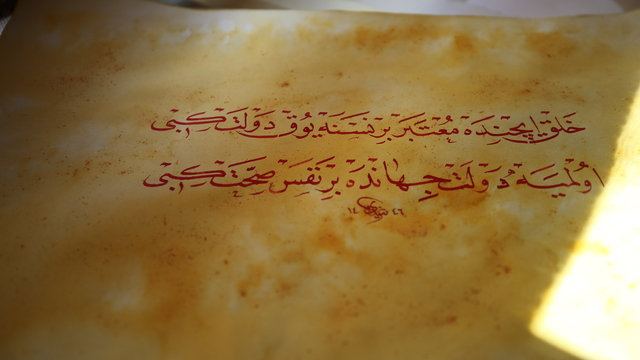 خلق ایچنده معتبر بر نسنه یوق دولت كبی
اولمیه دولت جهانده بر نفس صحت كبی
١٤٤٦